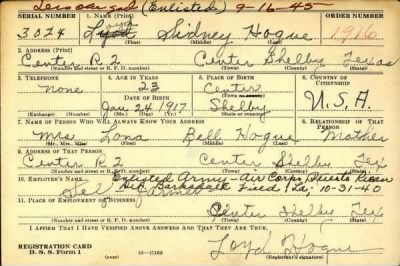 (Enlisted) 9-16-45
SERIAL NUMBER
1. NAME (Print)
ORDER NUMBER
3024 Loyd Sidney Hogue 1916
(First) (Middle) (Last)
2. ADDRESS (Print)
Center R 2 Center Shelby Texas
(Number and street or R. F. D. number) (Town) (County) (State)
3. TELEPHONE
4. AGE IN YEARS
5. PLACE OF BIRTH
6. COUNTRY OF CITIZENSHIP
none 23 Center
DATE OF BIRTH
(Town or county)
Jan 24 1917 Shelby U.S.A.
(Exchange) (Number) (Mo.) (Day) (Yr.) (State or country)
7. NAME OF PERSON WHO WILL ALWAYS KNOW YOUR ADDRESS
8. RELATIONSHIP OF THAT PERSON
Mrs Lona Bell Hogue Mother
(Mr., Mrs., Miss) (First) (Middle) (Last)
9. ADDRESS OF THAT PERSON
Center R 2 Center Shelby Tex
(Number and street or R. F. D. number) (Town) (County) (State)
10. EMPLOYER'S NAME
Enlisted Army - Air Corps Puerto Rican
Det. Barksdale Field, La; 10-31-40
Self Farmer
11. PLACE OF EMPLOYMENT OR BUSINESS
Center Shelby Tex
(Number and street or R. F. D. number) (Town) (County) (State)
I AFFIRM THAT I HAVE VERIFIED ABOVE ANSWERS AND THAT THEY ARE TRUE.
REGISTRATION CARD
D. S. S. Form 1
16-17105
Loyd Hogue
(Registrant's signature)